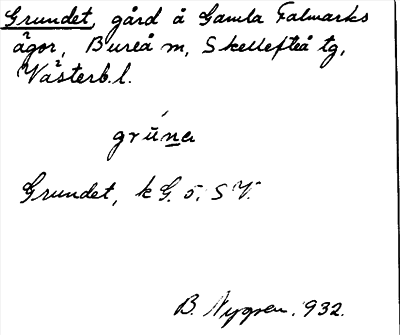 Grundet, gård å Gamla Falmarks
ägor, Bureå m, Skellefteå tg,
Västerb. l.
grŭna
Grundet, k G. ö. S V.
B. Nygren. 1932.